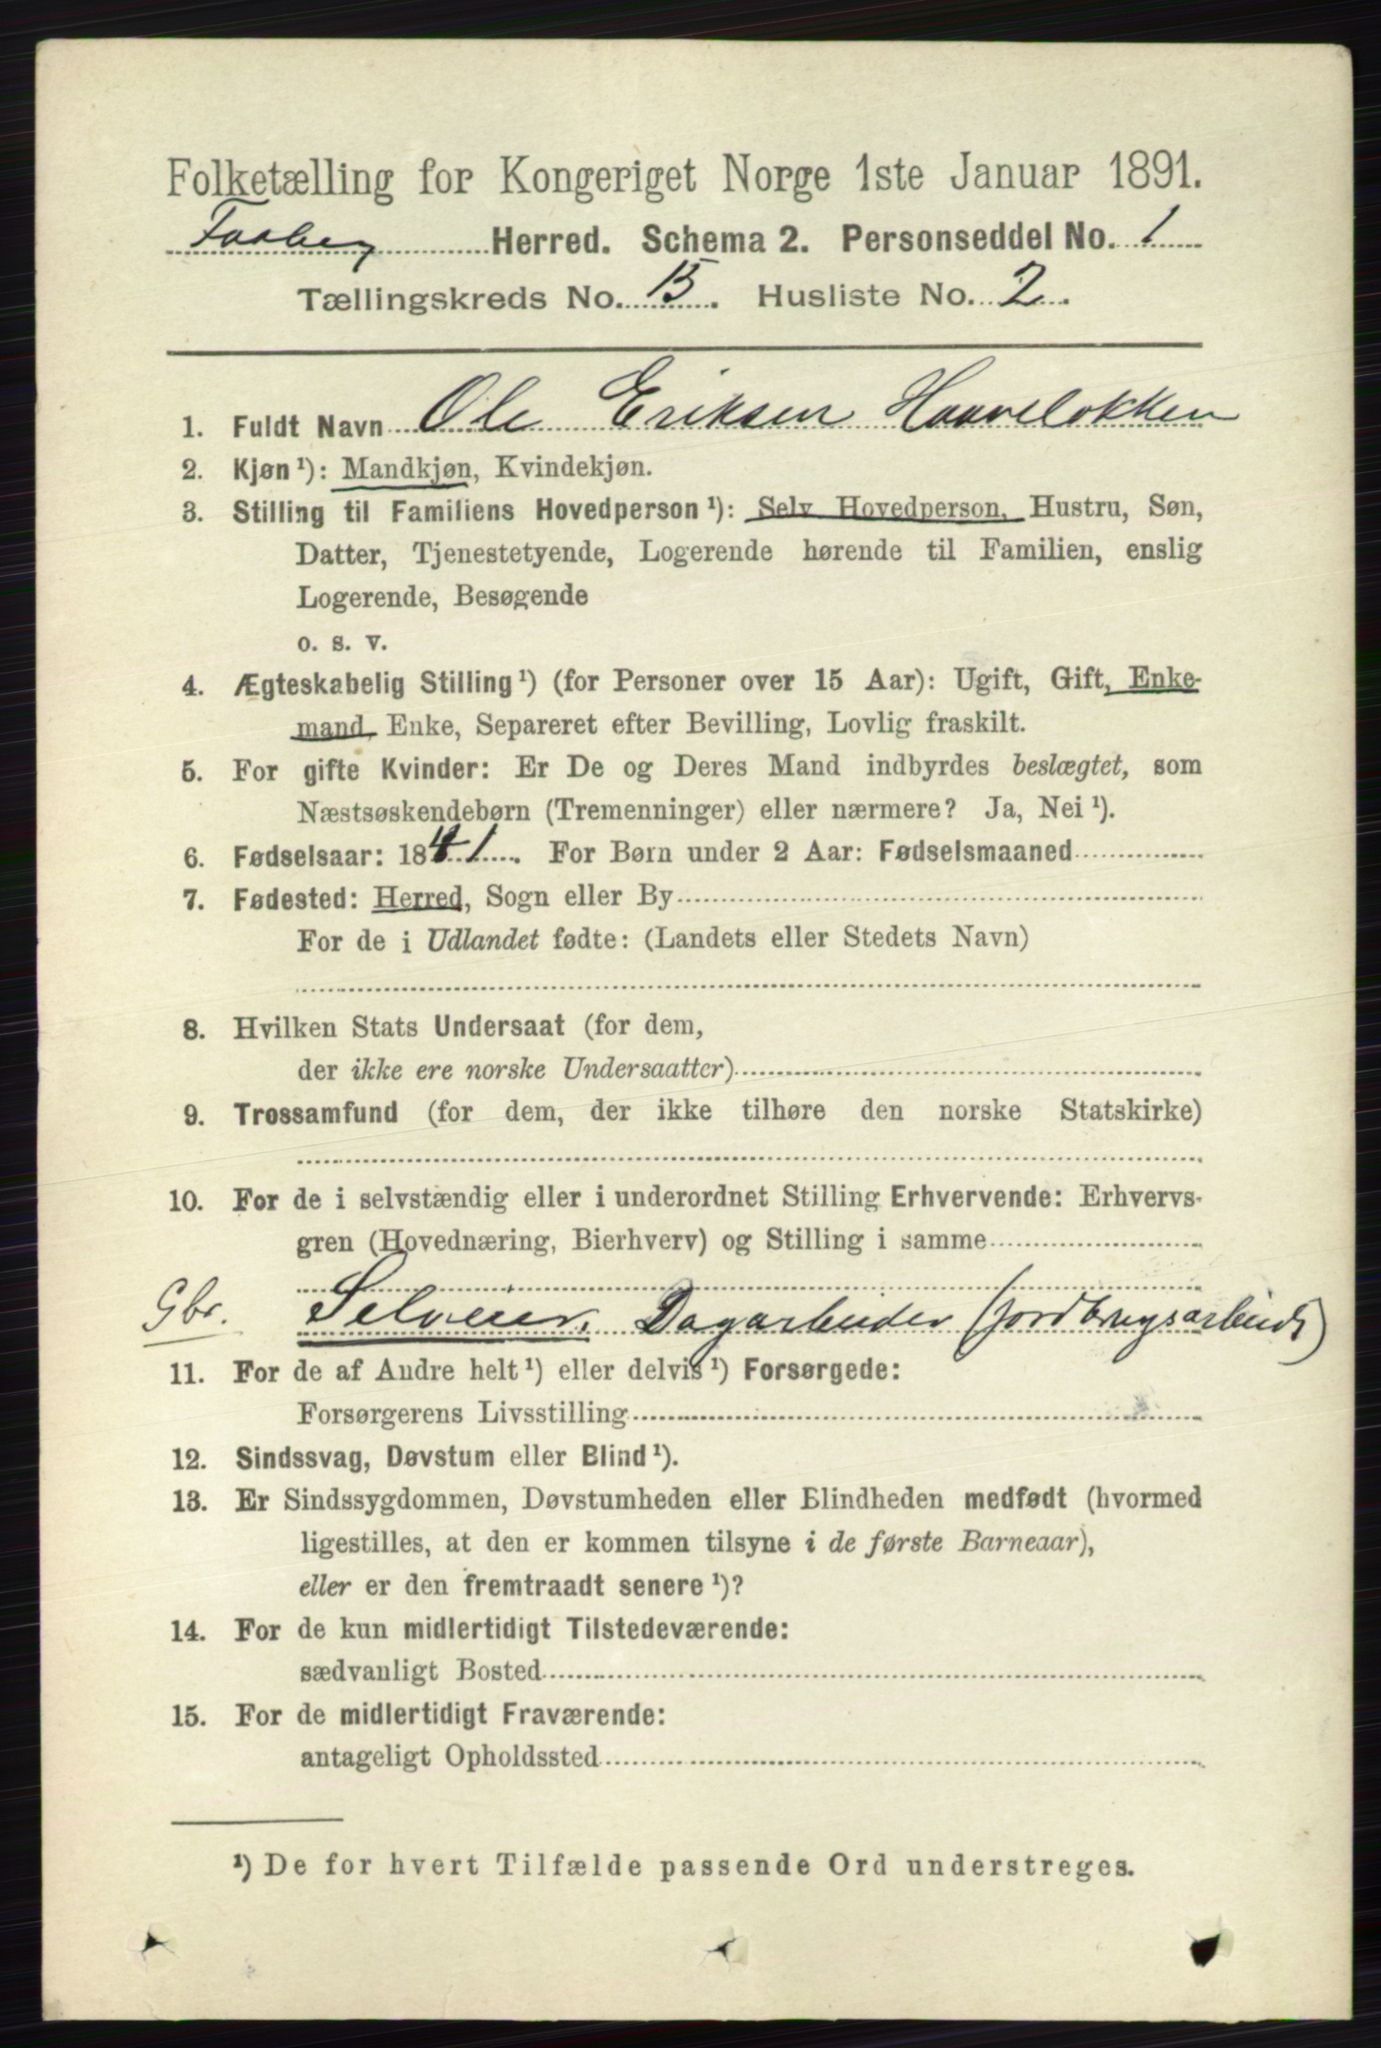 Folketælling for Kongeriget Norge 1ste Januar 1891.
Faaberg Herred. Schema 2. Personseddel No. 1
Tællingskreds No. 15. Husliste No. 2.
1. Fuldt Navn Ole Eriksen Haaveløkken
2. Kjøn¹): Mandkjøn, Kvindekjøn.
3. Stilling til Familiens Hovedperson¹): Selv Hovedperson, Hustru, Søn,
Datter, Tjenestetyende, Logerende hørende til Familien, enslig
Logerende, Besøgende
o. s. v.
4. Ægteskabelig Stilling¹) (for Personer over 15 Aar): Ugift, Gift, Enke-
mand, Enke, Separeret efter Bevilling, Lovlig fraskilt.
5. For gifte Kvinder: Er De og Deres Mand indbyrdes beslægtet, som
Næstsøskendebørn (Tremenninger) eller nærmere? Ja, Nei¹).
6. Fødselsaar: 1841. For Børn under 2 Aar: Fødselsmaaned
7. Fødested: Herred, Sogn eller By
For de i Udlandet fødte: (Landets eller Stedets Navn)
8. Hvilken Stats Undersaat (for dem,
der ikke ere norske Undersaatter)
9. Trossamfund (for dem, der ikke tilhøre den norske Statskirke)
10. For de i selvstændig eller i underordnet Stilling Erhvervende: Erhvervs-
gren (Hovednæring, Bierhverv) og Stilling i samme
Gbr. Selveier, Dagarbeider (jordbrugsarbeide)
11. For de af Andre helt¹) eller delvis¹) Forsørgede:
Forsørgerens Livsstilling
12. Sindssvag, Døvstum eller Blind¹).
13. Er Sindssygdommen, Døvstumheden eller Blindheden medfødt (hvormed
ligestilles, at den er kommen tilsyne i de første Barneaar),
eller er den fremtraadt senere¹)?
14. For de kun midlertidigt Tilstedeværende:
sædvanligt Bosted
15. For de midlertidigt Fraværende:
antageligt Opholdssted
¹) De for hvert Tilfælde passende Ord understreges.